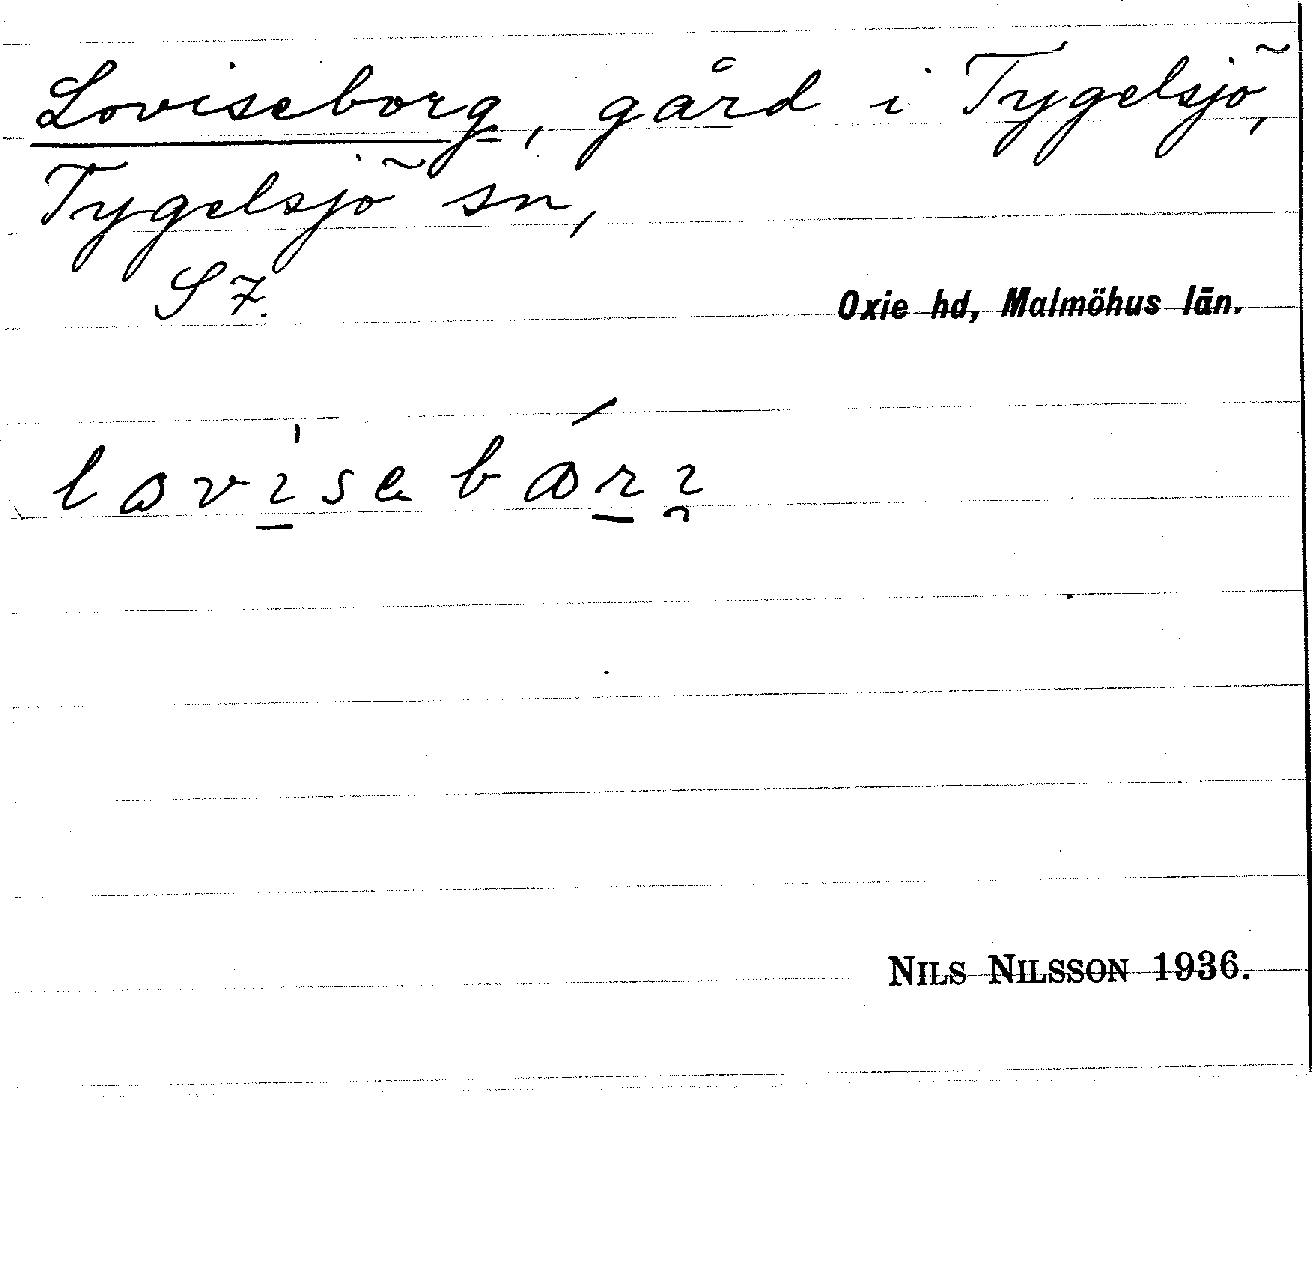 Loviseborg, gård i Tygelsjö,
Tygelsjö sn,
S 7.
Oxie hd, Malmöhus län.
NILS NILSSON 1936.